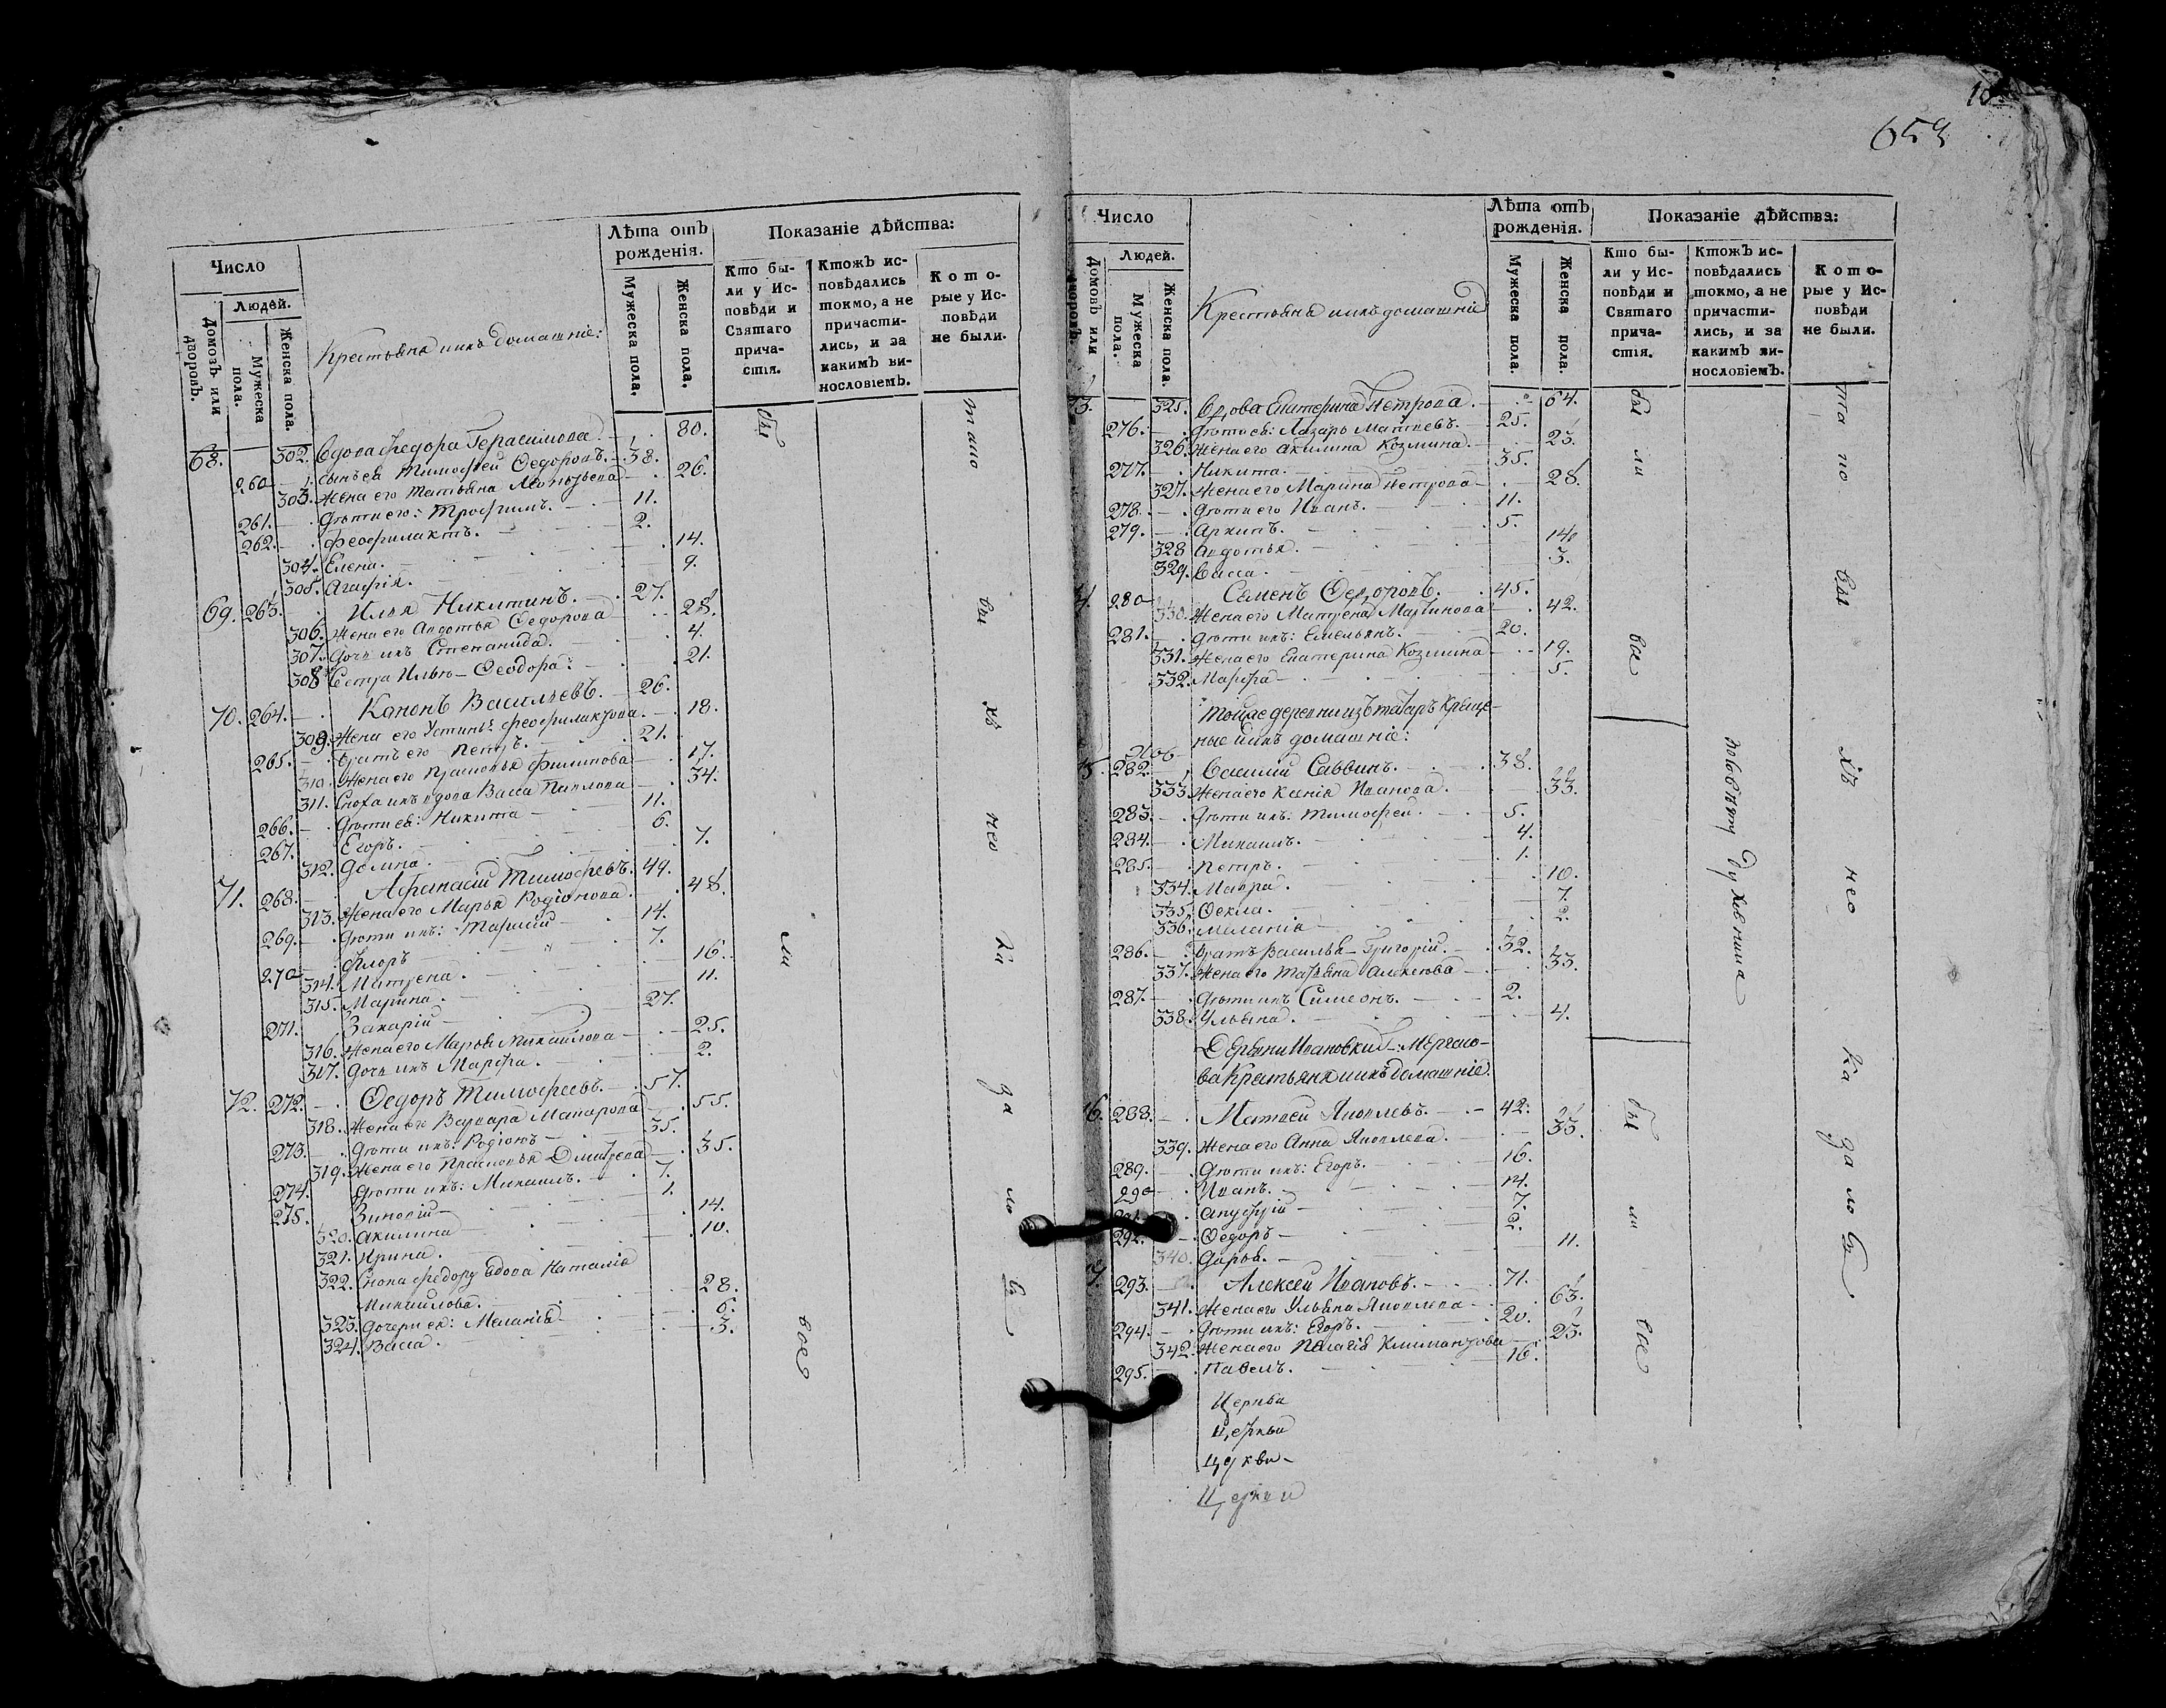 Число
Людей.
Домовъ или дворовъ.
Мужеска пола.
Женска пола.
Крестьяна ихъ домашніе:
Лѣта отъ рожденія.
Мужеска пола.
Женска пола.
Показаніе дѣйства:
Кто были у Исповѣди и Святаго причастія.
Ктожъ исповѣдались токмо, а не причастились, и за какимъ винословіемъ.
Которые у Исповѣди не были.
68. 302. Вдова Федора Герасимова. 80.
260 сынъ ея Тимофей Федоровъ. 38.
303. Жена его Татьяна 26.
261. Дѣти его: Трофимъ. 11.
262. Феофилактъ. 2.
304. Елена. 14.
305. Агафія. 9.
69. 263. Илья Никитинъ. 27.
306. Жена его Авдотья Федорова 28.
307. Дочь ихъ Степанида. 4.
308 Сестра Ильѣ Феодора. 21.
70. 264. Канонъ Васильевъ. 26.
309. Жена его Устинья Феофилактова. 18.
265. Братъ его Петръ. 21.
310. Жена его Прасковья Филипова 17.
311. Сноха ихъ вдова Васса Павлова 34.
266. Дѣти ея: Никита 11.
267. Егоръ. 6.
312. Домна. 7.
71. 268. Афанасій Тимофеевъ. 49.
313. Жена его Марья Родіонова. 48.
269. Дѣти ихъ: Тарасій 14.
270 Флоръ 7.
314. Матрена. 16.
315. Марина. 11.
271. Захарій 27.
316. Жена его Марья Михайлова 25.
317. Дочь ихъ Марфа. 2.
72. 272. Федоръ Тимофеевъ. 57.
318. Жена его Варвара Макарова 55.
273. Дѣти ихъ: Родіонъ 35.
319. Жена его Прасковья Дмитрева 35.
274. Дѣти ихъ: Михаилъ. 7.
275. Зиновій 1.
320. Акилина 14.
321. Ирина. 10.
322. Сноха Федору вдова Наталія
Михайлова. 28.
323. Дочери ея: Меланія 6.
324. Васса. 3.
бы
ли
вое
тамо
бы
хъ
нео
ка
за
ло
сь
659
Число
Людей.
Домовъ или дворовъ.
Мужеска пола.
Женска пола.
Крестьяна ихъ домашніе
Лѣта отъ рожденія.
Мужеска пола.
Женска пола.
Показаніе дѣйства:
Кто были у Исповѣди и Святаго причастія.
Ктожъ исповѣдались токмо, а не причастились, и за какимъ винословіемъ.
Которые у Исповѣди не были.
73. 325. Вдова Екатерина Петрова. 64.
276. Дѣти ея: Лазарь Матвеевъ. 25.
326. Жена его Акилина Козмина. 23.
277. Никита. 35.
327. Жена его Марина Петрова 28.
278. Дѣти его Иванъ. 11.
279. Архипъ. 5.
328 Авдотья. 14.
329. Васса. 3.
280 Семенъ Федоровъ. 45.
330. Жена его Матрена Мартинова 42.
281. Дѣти ихъ: Емельянъ. 20.
331. Жена его Екатерина Козмина 19.
332. Марфа 5.
Тойже деревни изъ татаръ Креще-
ные ихъ домашніе:
282. Василій Саввинъ. 38.
333. Жена его Ксенія Иванова. 33.
283. Дѣти ихъ: Тимофей. 5.
284. Михаилъ. 4.
285. Петръ. 1.
334. Мавра. 10.
335. Фекла. 7.
336. Меланія 2.
286. Братъ Василья Григорій. 32.
337. Жена его Татьяна Алексеева 33.
287. Дѣти ихъ Симеонъ. 2.
338. Ульяна. 4.
Деревни Ивановки
Крестьяна ихъ домашніе.
288. Матвей Яковлевъ. 42.
339. Жена его Анна Яковлева. 33.
289. Дѣти ихъ: Егоръ. 16.
290 Иванъ. 14.
291. Ануфрій 7.
292. Федоръ 2.
340. Дарья. 11.
293. Алексей Ивановъ. 71.
341. Жена его Ульяна Яковлева 63.
294. Дѣти ихъ: Егоръ. 20.
342. Жена его Пелагія 23.
295. Павелъ. 16.
Церкви
Церкви
Церкви
бы
ли
вое
бы
ли
вое
бы
хъ
нео
ка
за
ло
сь